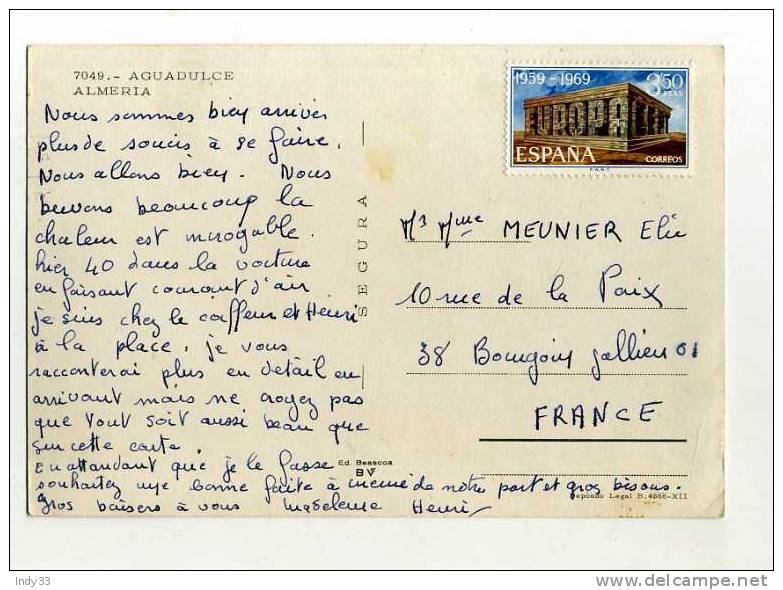 7049.- AGUADULCE
ALMERIA
Nous sommes bien arrivés
plus de soucis à se faire.
Nous allons bien. Nous
buvons beaucoup la
chaleur est incroyable.
hier 40 dans la voiture
en faisant courant d'air
je suis chez le coiffeur et Henri
à la place. je vous
raconterai plus en détail en
arrivant mais ne croyez pas
que tout soit aussi beau que
sur cette carte.
en attendant que je le fasse
souhaitez une bonne faite à mémé de notre part et gros bisous.
gros baisers à vous Madeleine Henri
SEGURA
Ed. Beascoa
BV
1959 - 1969
3,50
PTAS
EUROPA
ESPAÑA
CORREOS
F.N.M.T.
Mr Mme MEUNIER Elie
10 rue de la Paix
38 Bourgoin Jallieu 01
FRANCE
Deposito Legal B. 4068-XII
Indy33
delcampe.net